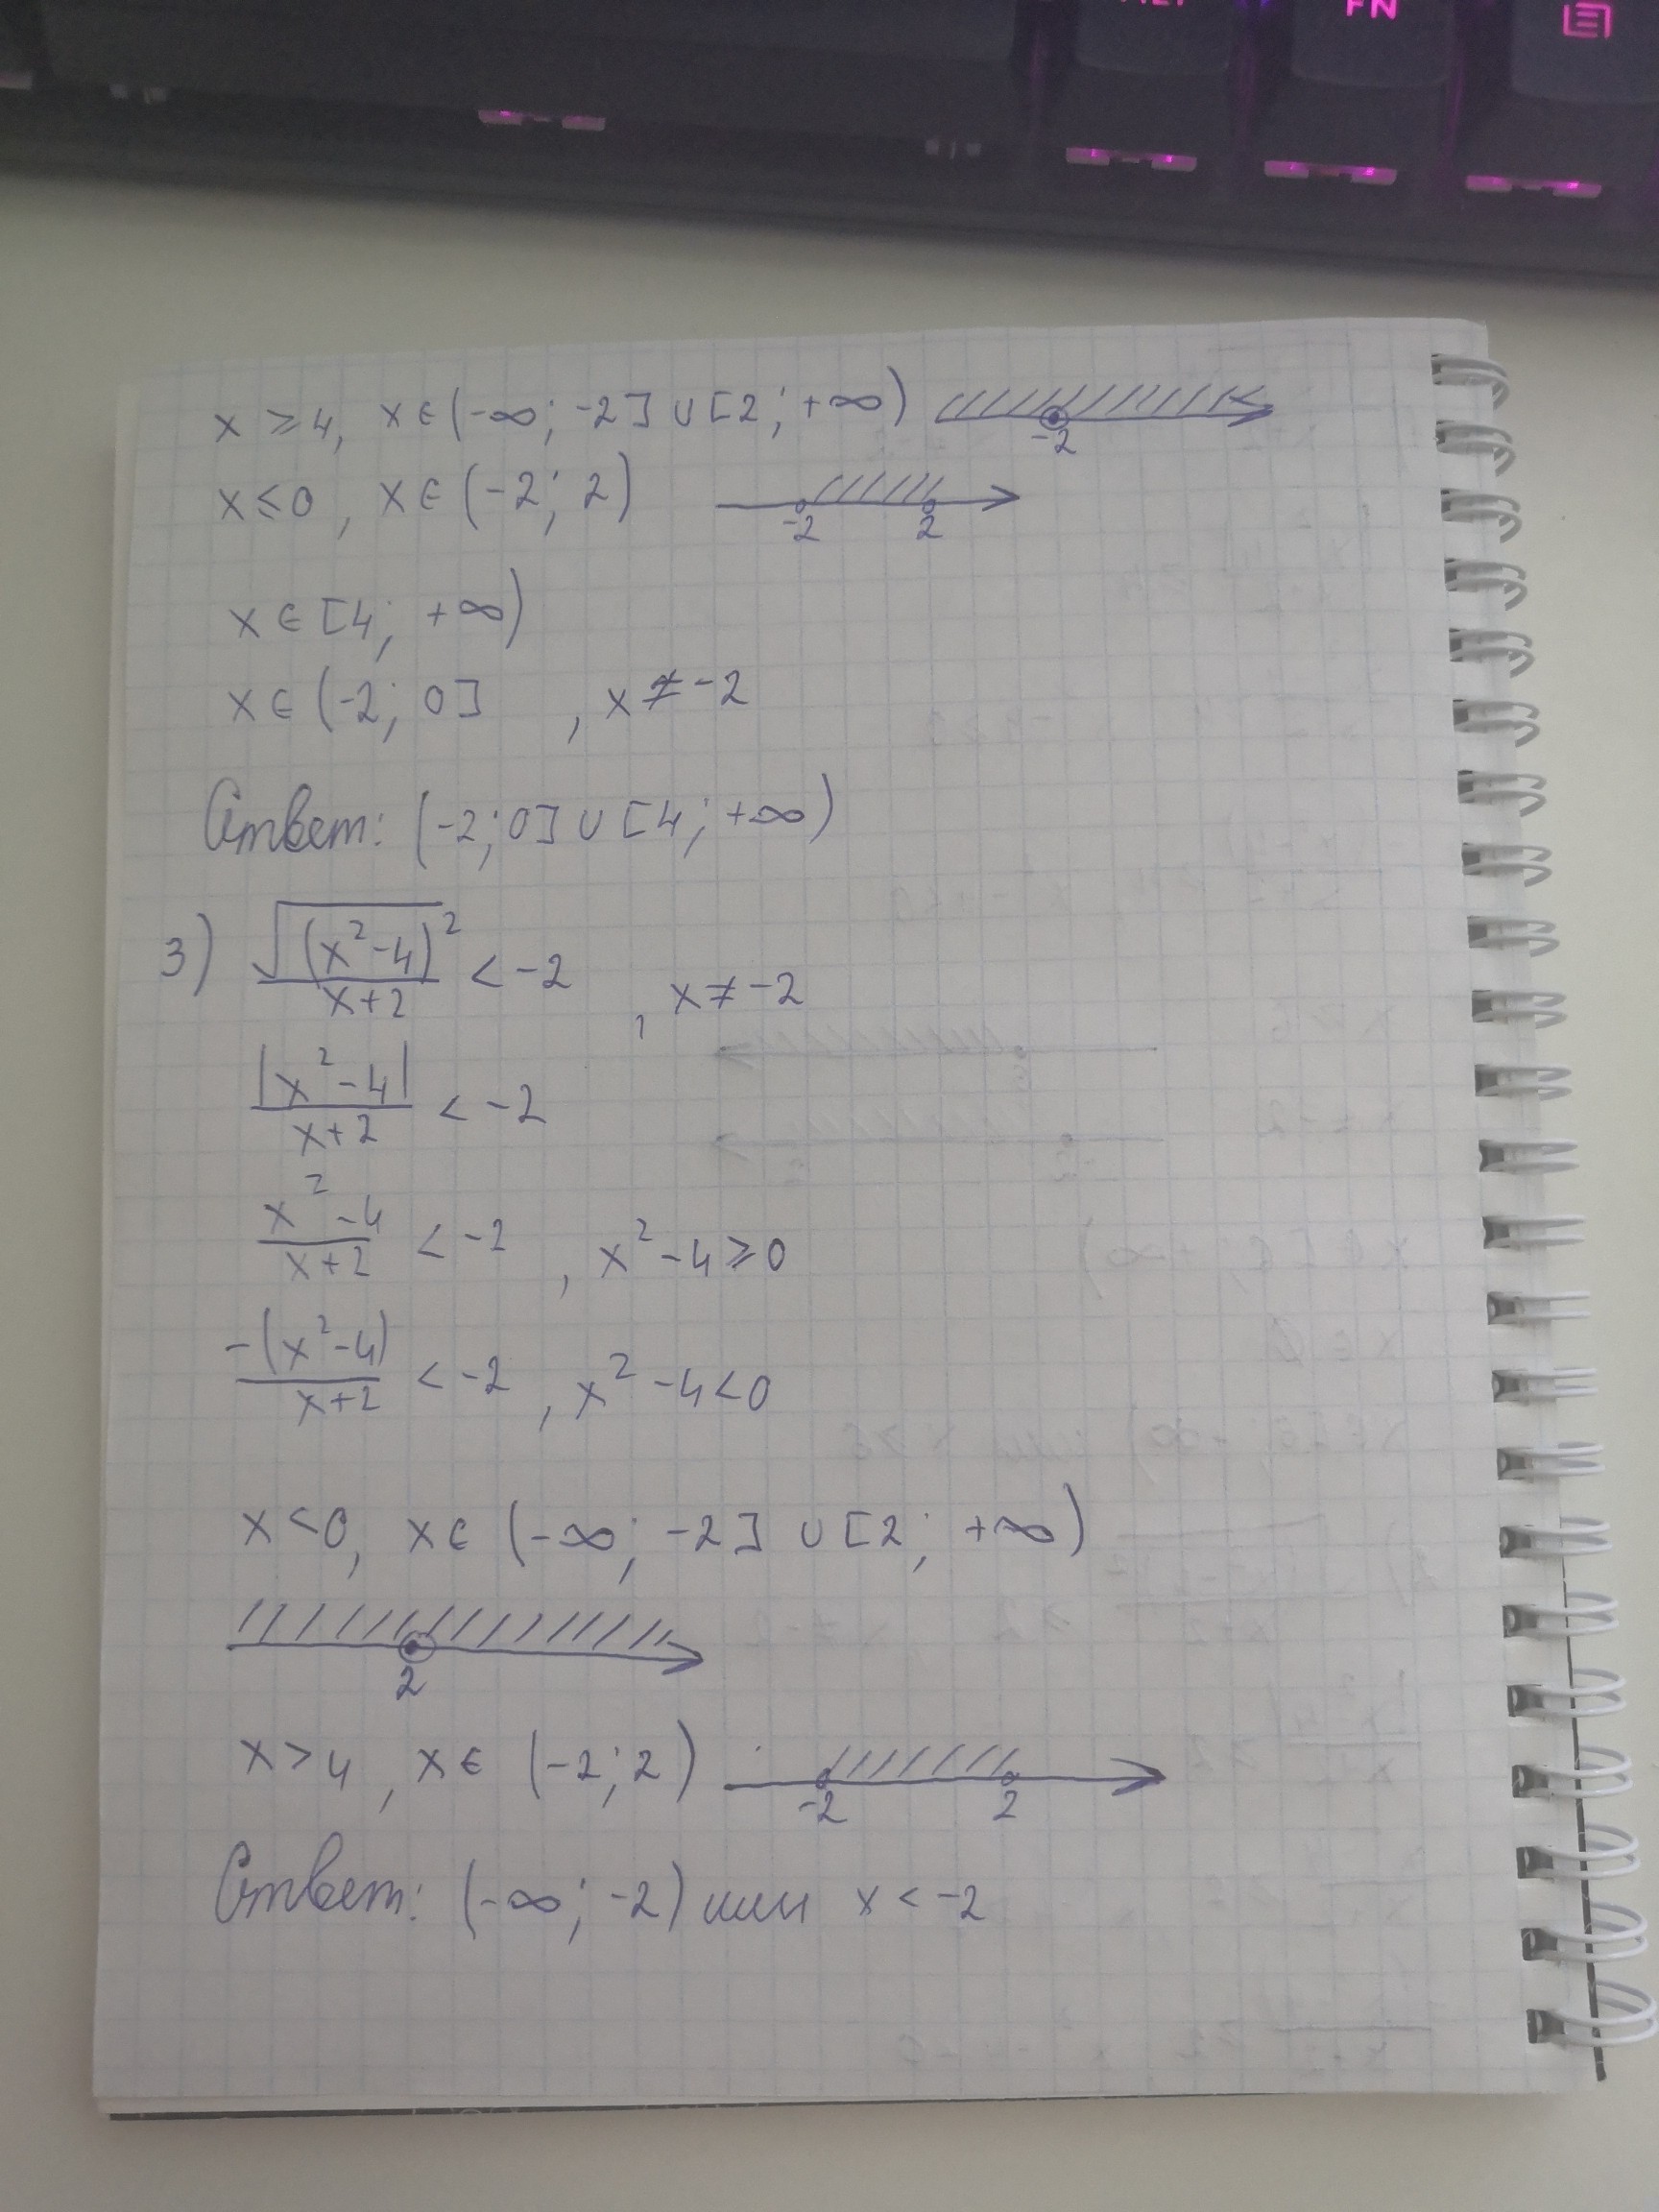 FN
x ⩾ 4, x ∈ (-∞; -2] ∪ [2; +∞)
-2
x ⩽ 0, x ∈ (-2; 2)
-2 2
x ∈ [4; +∞)
x ∈ (-2; 0] , x ≠ -2
Ответ: (-2; 0] ∪ [4; +∞)
3) √(x² - 4)² / x+2 < -2 , x ≠ -2
|x² - 4| / x+2 < -2
x² - 4 / x+2 < -2 , x² - 4 ⩾ 0
-(x² - 4) / x+2 < -2 , x² - 4 < 0
x < 0, x ∈ (-∞; -2] ∪ [2; +∞)
2
x > 4, x ∈ (-2; 2)
-2 2
Ответ: (-∞; -2) или x < -2